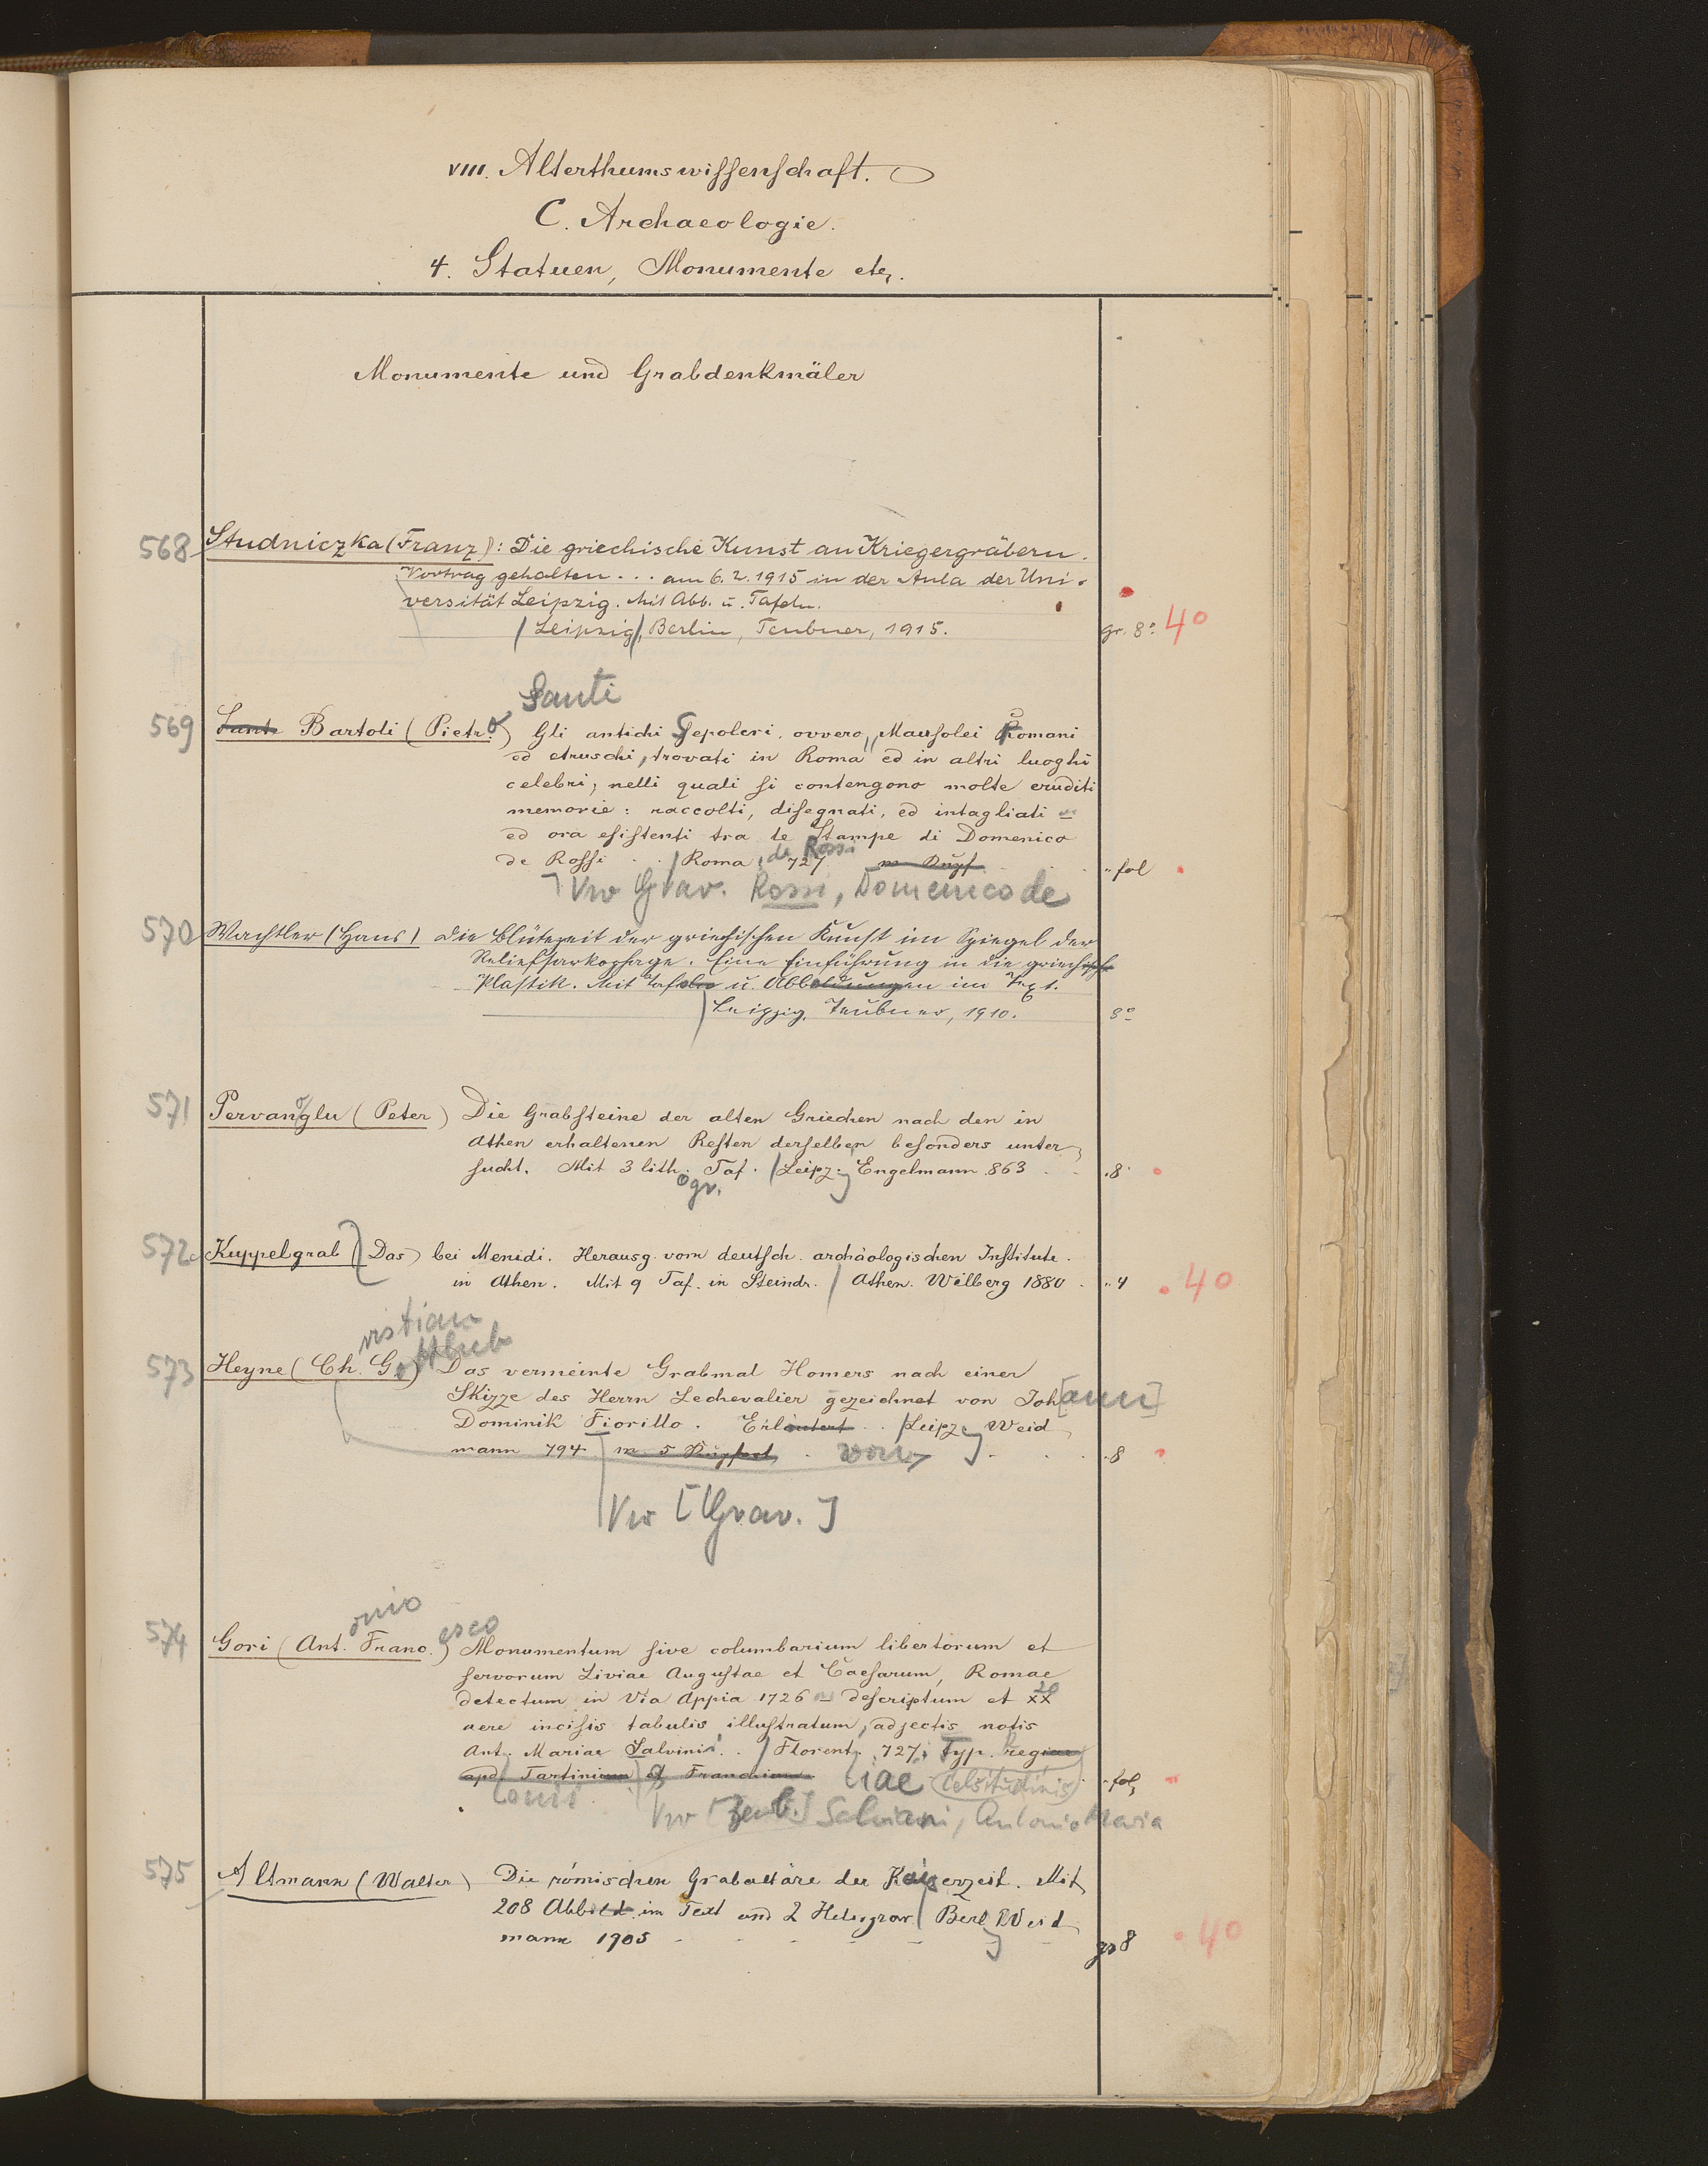 VIII. Alterthumswissenschaft.
C. Archaeologie.
4. Statuen, Monumente etc.
Monumente und Grabdenkmäler
568 Studniczka (Franz): Die griechische Kunst an Kriegergräbern.
Vortrag gehalten ... am 6.2.1915 in der Aula der Uni-
versität Leipzig. Mit Abb. u. Tafeln.
/Leipzig/, Berlin, Teubner, 1915. gr. 8° 4°
Santi
569 Sante Bartoli (Pietro) Gli antichi Sepolcri, ovvero Mausolei Romani
ed etruschi, trovati in Roma ed in altri luoghi
celebri; nelli quali si contengono molte eruditi
memorie: raccolti, disegnati, ed intagliati
ed ora esistenti tra le Stampe di Domenico
de Rossi
de Rossi . . /Roma, 727 m Kupf. fol
Vw Grav. Rossi, Domenico de
570 Wachtler (Hans) Die Blütezeit der griechischen Kunst im Spiegel der
Reliefsarkophage. Eine Einführung in die griechische
Plastik. Mit Tafeln u. Abbildungen im Text.
/Leipzig, Teubner, 1910. 8°
571 Pervanoglu (Peter) Die Grabsteine der alten Griechen nach den in
Athen erhaltenen Resten derselben besonders unter-
sucht. Mit 3 lith. Taf. /Leipz. Engelmann 863 8
ogr.
572 Kuppelgrab (Das) bei Menidi. Herausg. vom deutsch. archäologischen Institute
in Athen. Mit 9 Taf. in Steindr. / Athen. Wilberg 1880 4 40
ristian
ottlieb
573 Heyne (Ch. G.) Das vermeinte Grabmal Homers nach einer
Skizze des Herrn Lechevalier gezeichnet von Joh[ann]
Dominik Fiorillo. Erläutert . . /Leipz. Weid-
mann 794 m 5 Kupfert. von 8
Vw [Grav.]
onio esco
574 Gori (Ant. Franc.) Monumentum sive columbarium libertorum et
servorum Liviae Augustae et Caesarum, Romae
detectum in Via Appia 1726 descriptum et XX 20
aere incisis tabulis illustratum, adjectis notis
Ant. Mariae Salvinii . . / Florent. 727, Typ. regiae
apd Tartinium & Franchium liae Celsitudinis fol
Vw Salviani, Antonio Maria
575 Altmann (Walter) Die römischen Grabaltäre der Kaiserzeit. Mit
208 Abbild. im Text und 2 Heliograv. / Berl. Weid-
mann 1905 gr 8 40